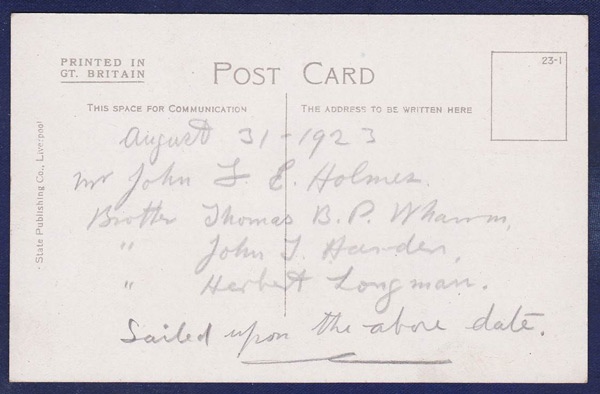 PRINTED IN
GT. BRITAIN
POST CARD
23-1
THIS SPACE FOR COMMUNICATION
THE ADDRESS TO BE WRITTEN HERE
State Publishing Co., Liverpool
August 31-1923
Mr John E. Holmes.
Brother Thomas B. P.
" John
" Herbert Longman.
Sailed upon the above date.